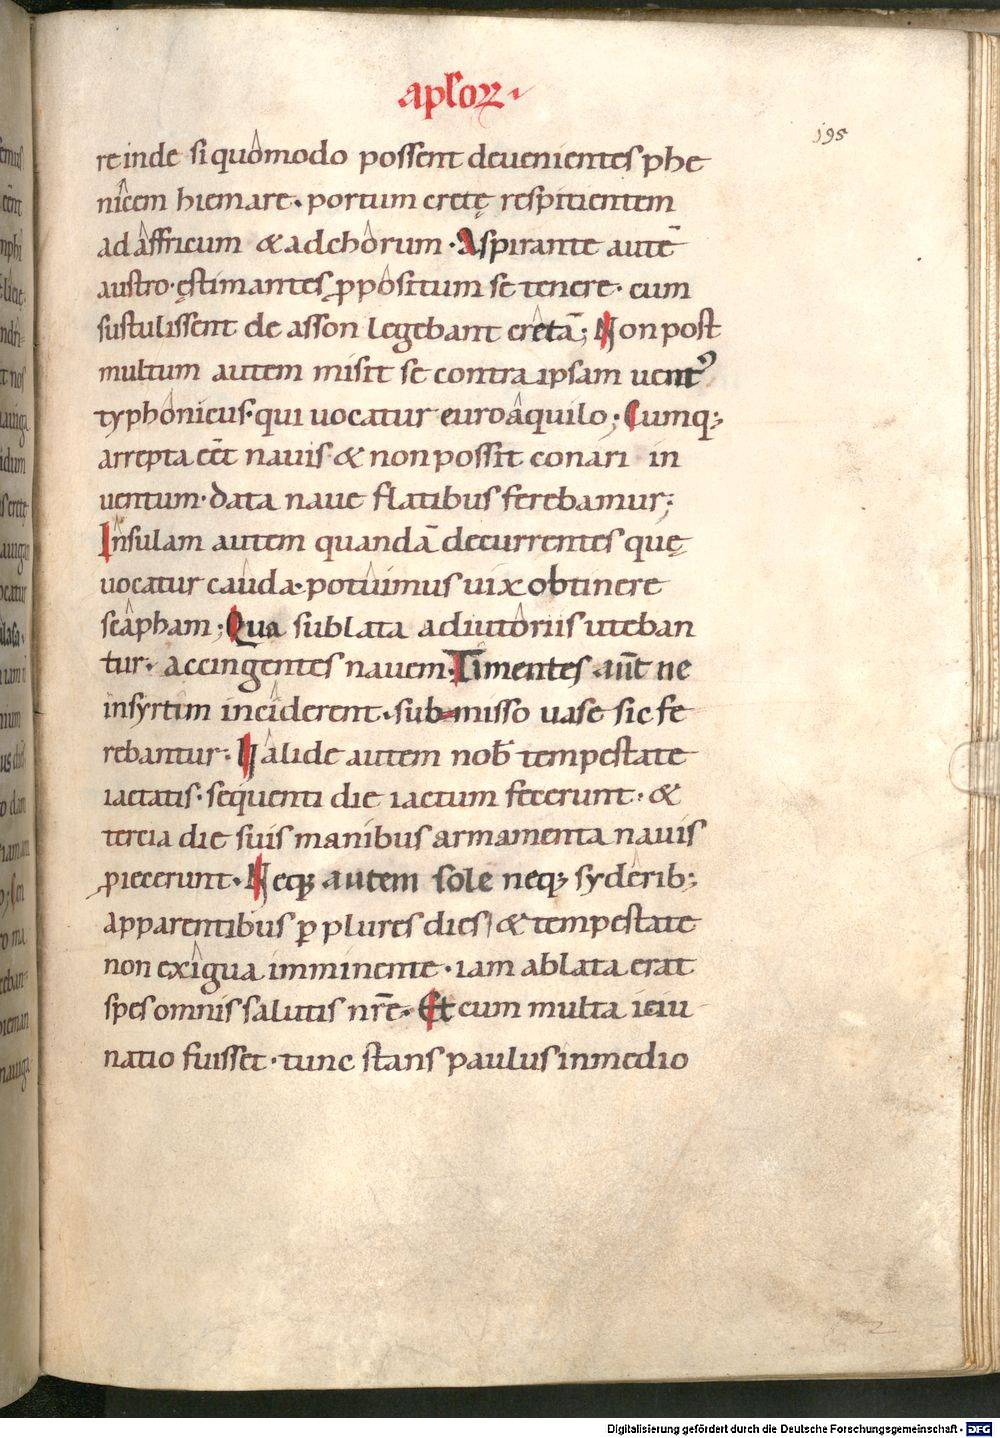 apłoꝝ.
195
re inde si quomodo possent deuenientes phe
nicem hiemare. portum cretę respitientem
ad affricum & ad chorum. Aspirante autē
austro. ęstimantes ꝓpositum se tenere. cum
sustulissent de asson legebant cretā; Non post
multum autem misit se contra ipsam uentꝰ
typhonicus. qui uocatur euroaquilo; Cumq;
arrepta eēt nauis. & non possit conari in
uentum. data naue flatibus ferebamur;
Insulam autem quandā decurrentes quę
uocatur cauda. potuimus uix obtinere
scapham; Qua sublata adiutoriis uteban
tur. accingentes nauem. Timentes aūt ne
in syrtim inciderent. sub-misso uase sic fe
rebantur. Ualide autem nob̄ tempestate
iactatis. sequenti die iactum fecerunt. &
tercia die suis manibus armamenta nauis
ꝓiecerunt. Neq; autem sole neq; syderib;
apparentibus ꝑ plures dies / & tempestate
non exigua imminente. iam ablata erat
spes omnis salutis nr̄e. Et cum multa ieiu
natio fuisset. tunc stans paulus in medio
Digitalisierung gefördert durch die Deutsche Forschungsgemeinschaft - DFG